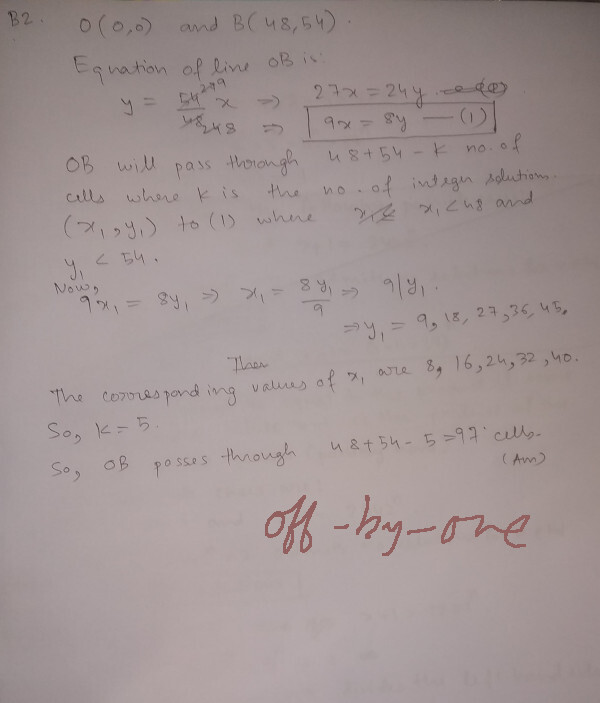 B2. O(0,0) and B(48,54).
Equation of line OB is:
y = 54/48 x ⇒ 27x = 24y
⇒ 9x = 8y — (1)
OB will pass through 48+54-k no. of
cells where k is the no. of integer solutions
(x₁, y₁) to (1) where x₁ < 48 and
y₁ < 54.
Now,
9x₁ = 8y₁ ⇒ x₁ = 8y₁/9 ⇒ 9|y₁.
⇒ y₁ = 9, 18, 27, 36, 45.
Then
The corresponding values of x₁ are 8, 16, 24, 32, 40.
So, k = 5.
So, OB passes through 48+54-5 = 97 cells.
(Ans)
off-by-one